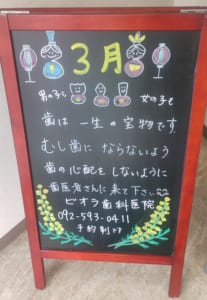 3月
男の子も
女の子も
歯は一生の宝物です
むし歯にならないよう
歯の心配をしないように
歯医者さんに来て下さいネ
ビオラ歯科医院
092-593-0411
予約制です